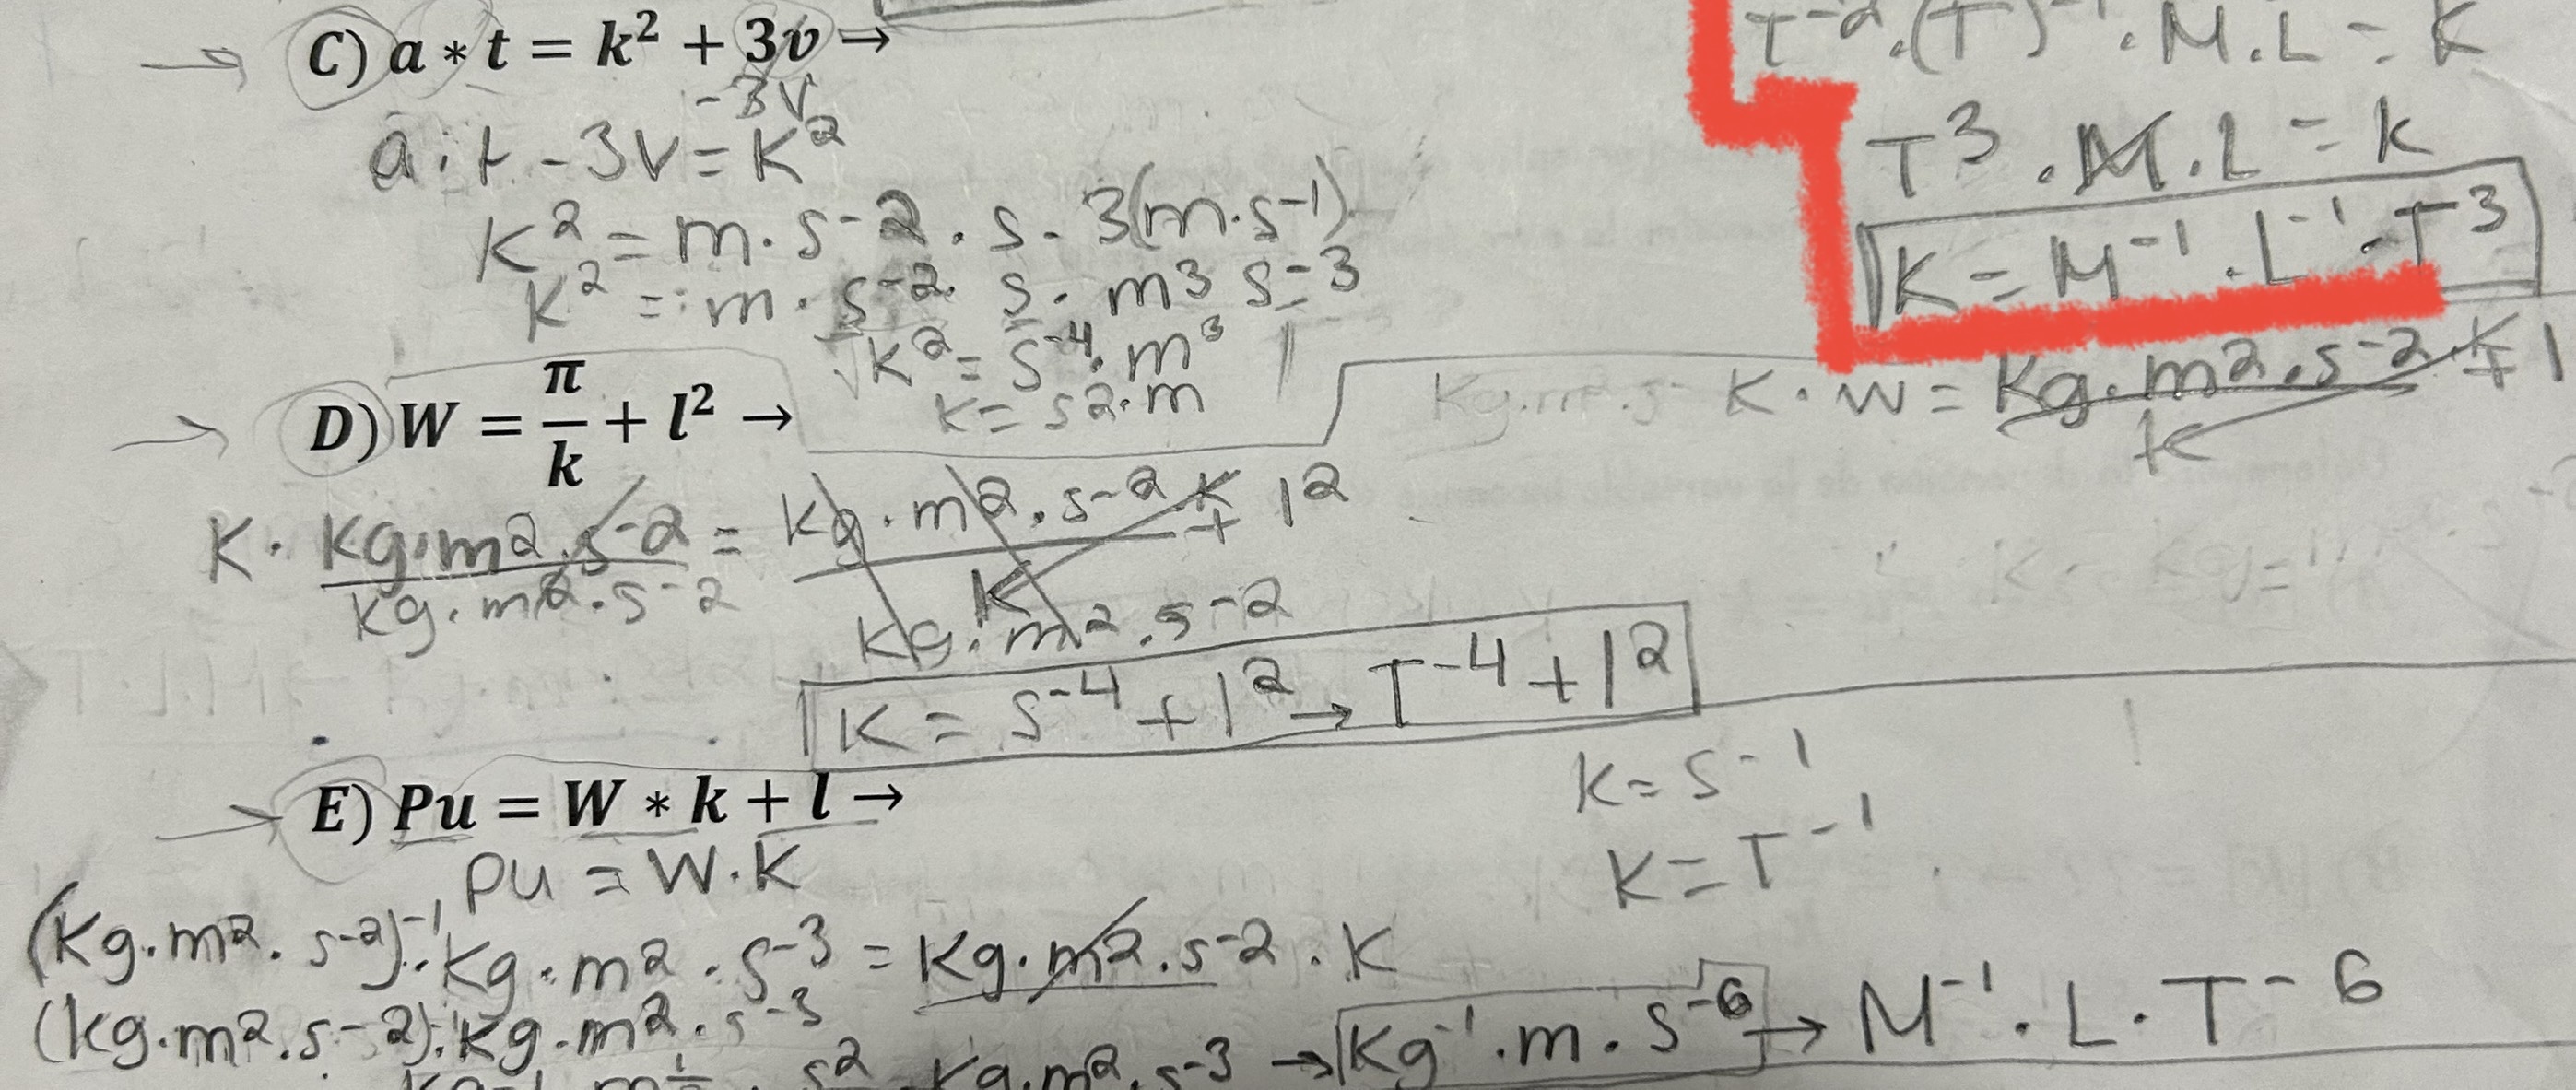 C) a * t = k² + 3v →
-3V
a · t - 3V = K²
K² = m · s-2 · s - 3(m·s-1)
K² = m · s-2 · s · m3 s-3
√K² = s-4 · m³
K = s2·m
T-2 · (T)-1 · M · L = K
T3 · M · L = K
K = M-1 · L-1 · T3
D) W = π/k + l² →
K · W = Kg · m2 · s-2 · K + 1
K
K · Kg·m2·s-2 = Kg · m2 · s-2 · K + 12
Kg·m2·s-2 K
Kg·m2·s-2
K = s-4 + 12 → T-4 + 12
E) Pu = W * k + l →
K = s-1
K = T-1
PU = W·K
(Kg·m2·s-2)-1 · Kg·m2·s-3 = Kg·m2·s-2 · K
(Kg·m2·s-2)-1 · Kg·m2·s-3
s2 · Kg·m2·s-3 → Kg-1 · m · s-6 → M-1 · L · T-6